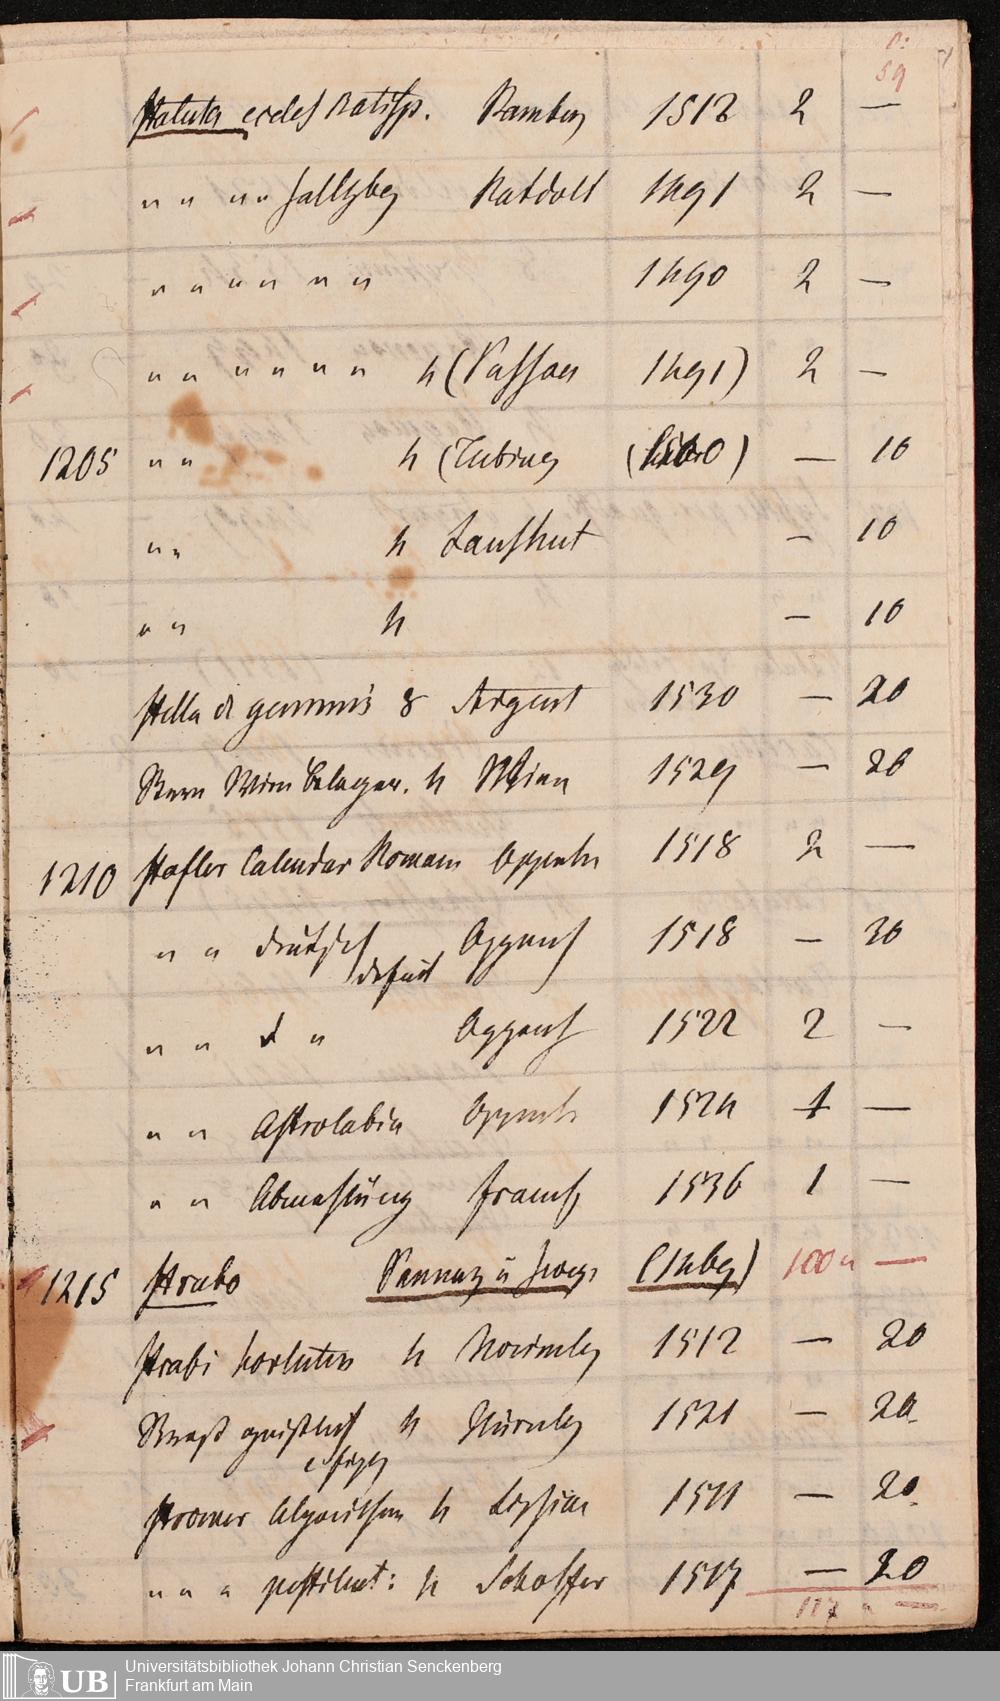 p: 59
Statuta eccles Ratisp. Bamberg 1512 2 —
" " " " Saltzbg Ratdolt 1491 2 —
" " " " " " 1490 2 —
" " " " " " 4 (Passau 1491) 2 —
1205 " " 4 (Tubing (1500) — 10
" " 4 Landshut — 10
" " 4 — 10
Stella de gemmis 8 Argent 1530 — 20
Stern Wien Belager. 4 Wien 1529 — 20
1210 Stofler Calendar Roman Oppenh 1518 2 —
" " deutsch defect Oppenh 1518 — 30
" " d " Oppenh 1522 2 —
" " Astrolabia Oppenh 1524 1 —
" " Abmessung francf 1536 1 —
1215 Strabo Pannarz u Sweyn (1469) 100 " —
Strabi hortulus 4 Noribergs 1512 — 20
geistlich 4 Nürnbg 1521 — 20
Stromer Algorithm 4 Lipsiae 1511 — 20
" " " pestilent: 4 Schoffer 1517 — 20
117 " —
Universitätsbibliothek Johann Christian Senckenberg
UB Frankfurt am Main